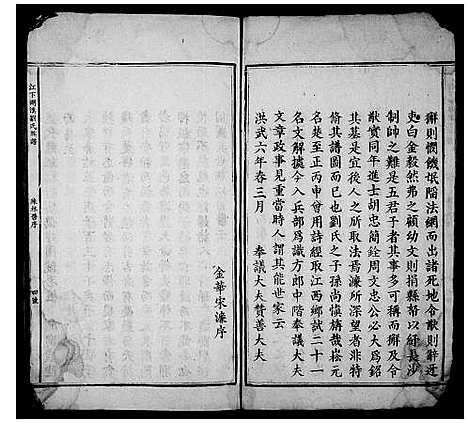 廨則憫饑氓陷法網而出諸死地令猷則辭近
吏白金毅然弗之顧幼文則捐縣帑以紓長沙
制帥之難是五君子者其事多可稱而廨及令
猷實同年進士胡忠簡銓周文忠公必大為銘
其墓是宜後人之所取法焉濂所深望者非特
脩其譜圖而已也劉氏之子孫尚慎旃哉崧元
名楚至正丙申曾用詩經取江西鄉試二十一
名文解據今入兵部為職方郎中階奉議大夫
文章政事見重當時人謂其能世家云
洪武六年春三月 奉議大夫贊善大夫
金華宋濂序
劉氏族譜
序
四